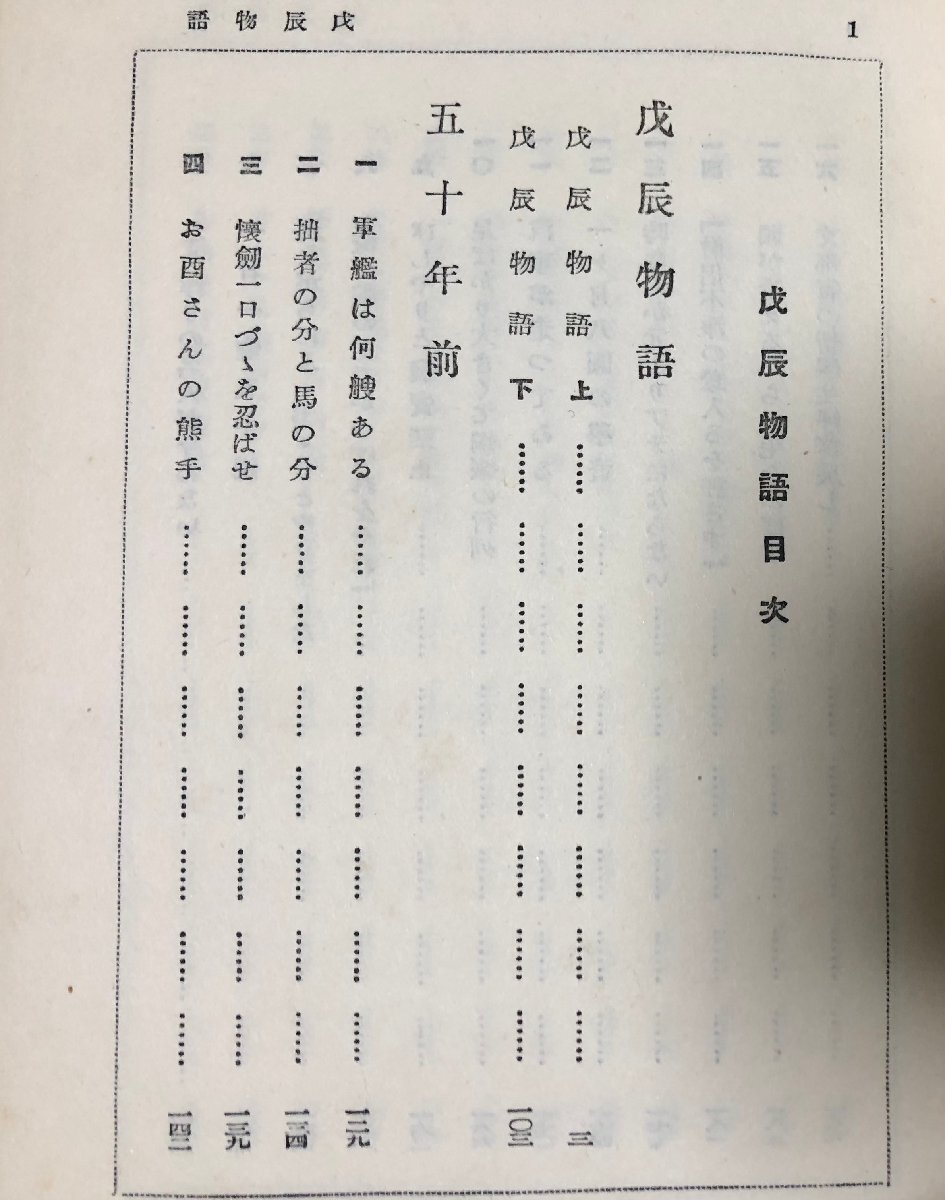 語物辰戊
1
戊辰物語目次
戊辰物語
戊辰物語 上……………………………………………三
戊辰物語 下……………………………………………一〇三
五十年前
一 軍艦は何艘ある……………………………………一二九
二 拙者の分と馬の分…………………………………一三四
三 懷劒一口づゝを忍ばせ……………………………一三九
四 お酉さんの熊手……………………………………一四三